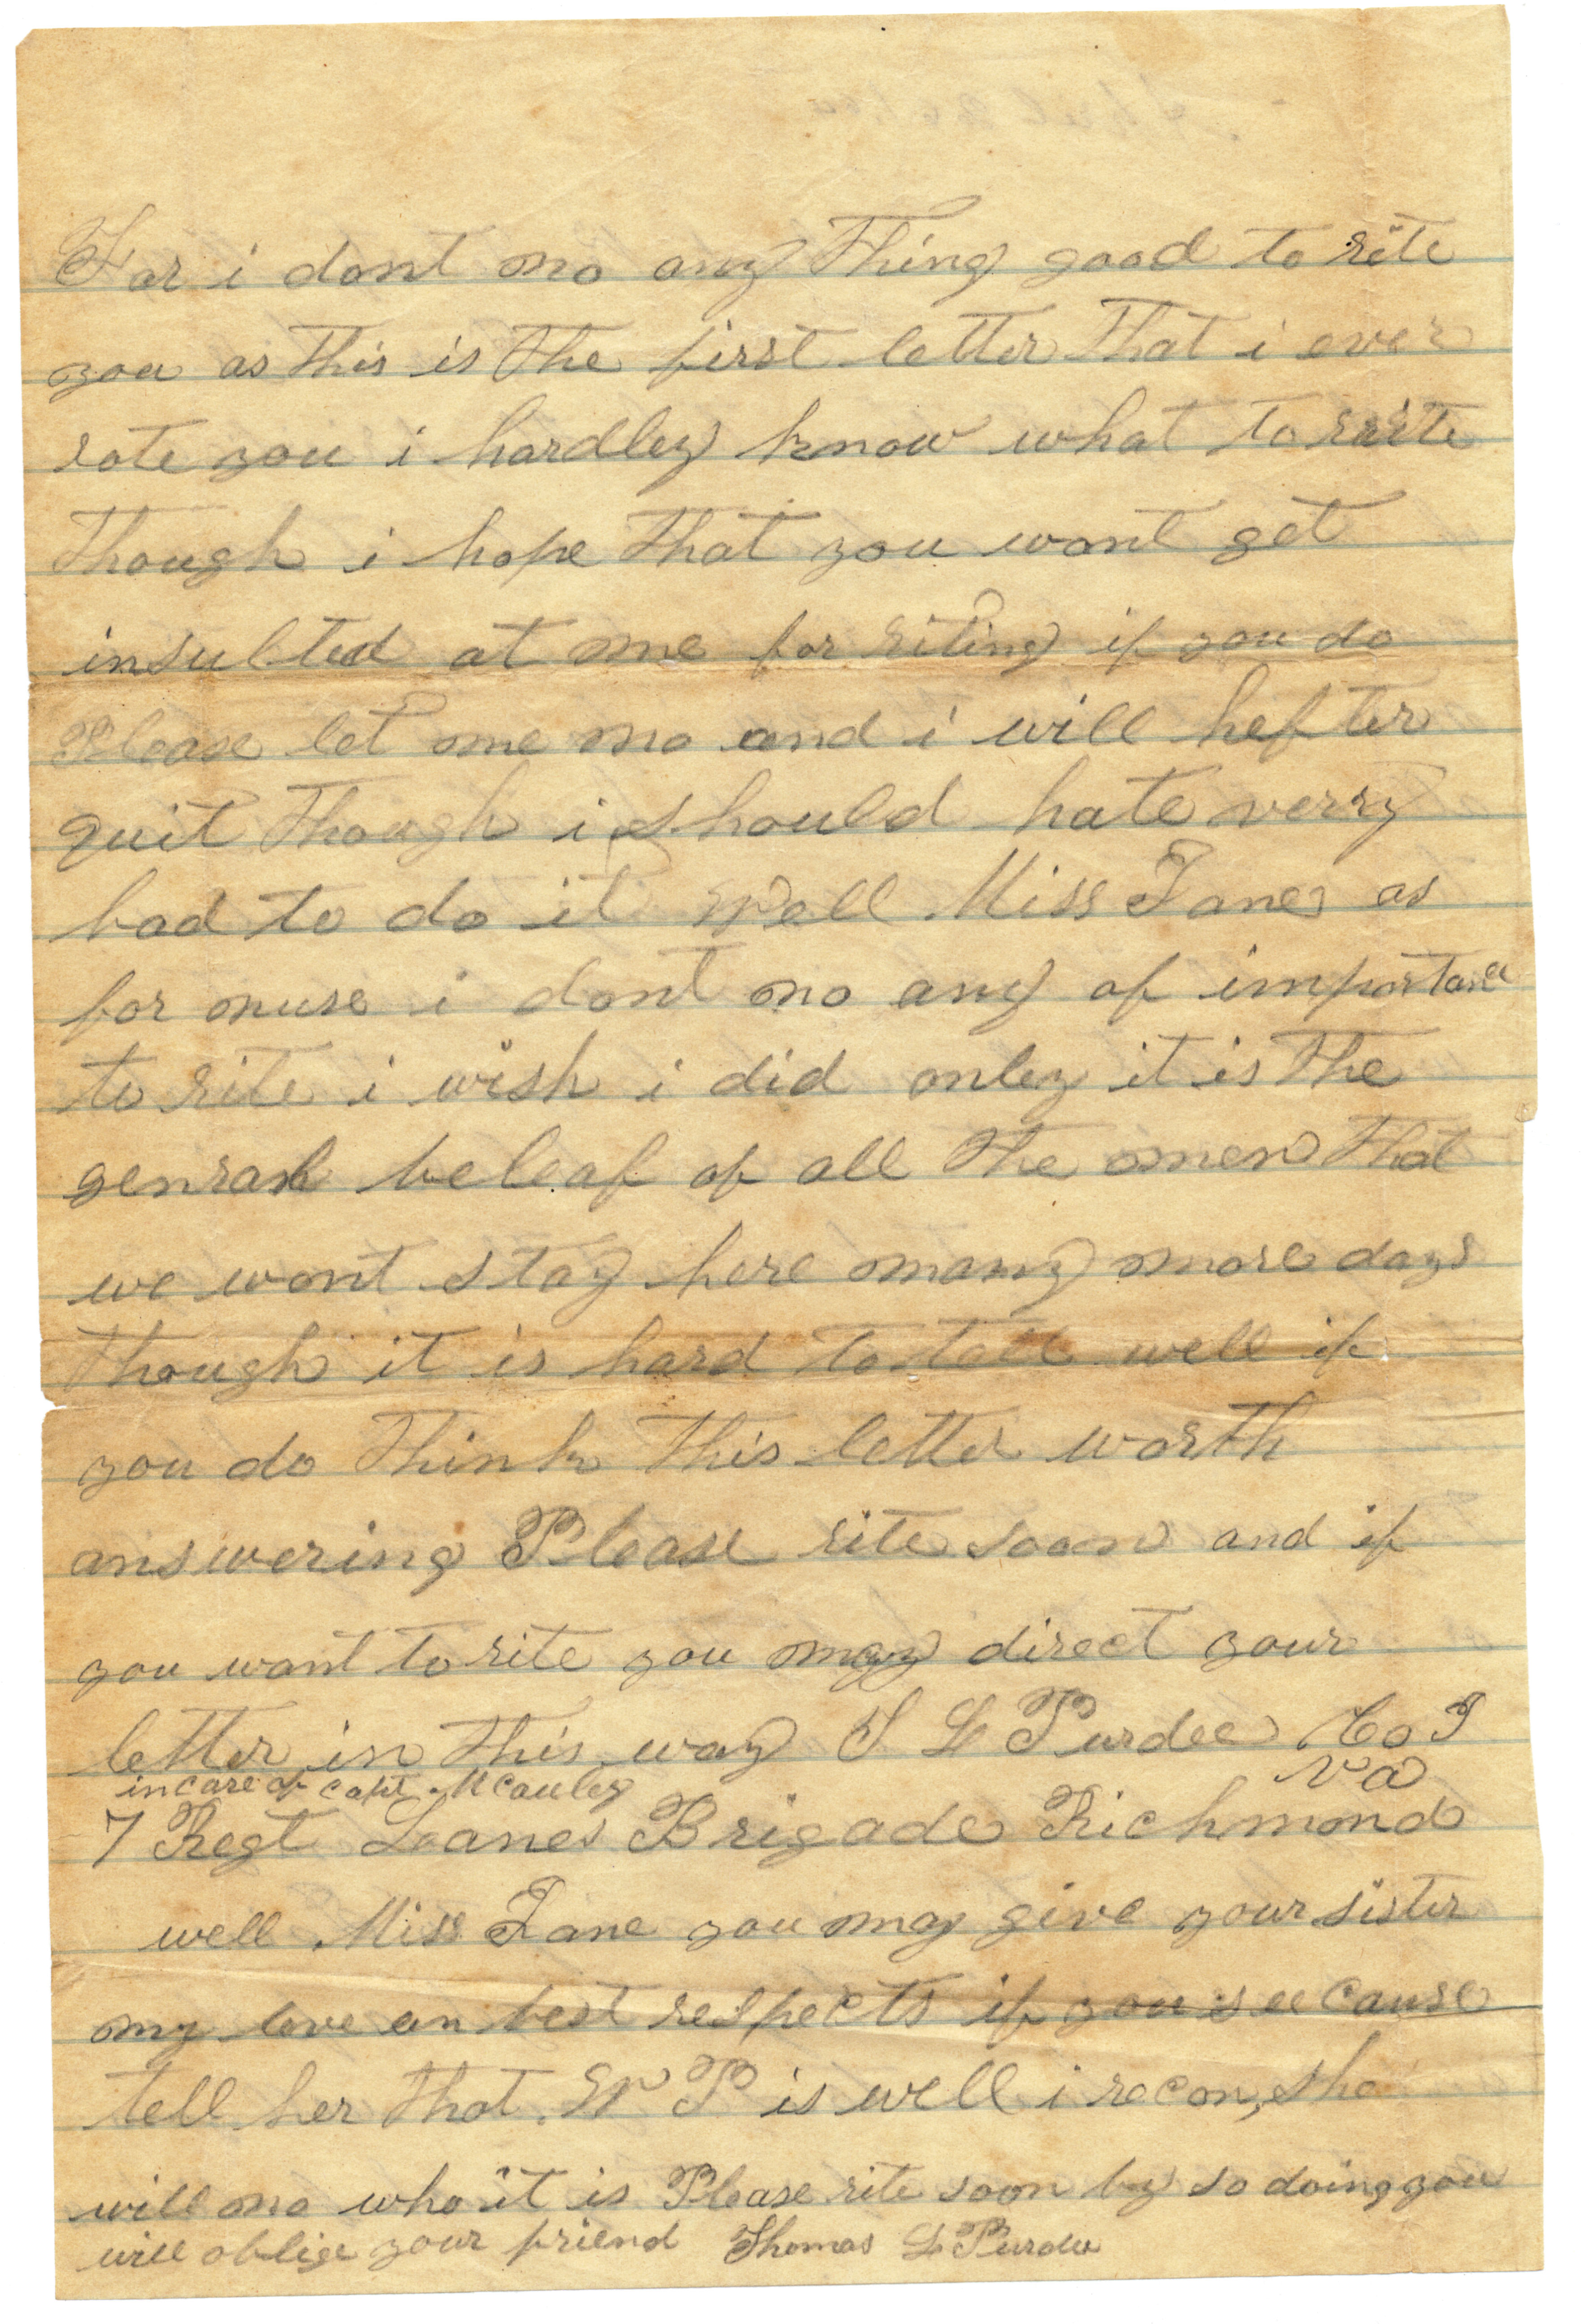 For i dont no any thing good to rite
you as this is the first letter that i ever
rote you i hardley know what to rite
though i hope that you wont get
insulted at me for riting if you do
Please let me no and i will hefter
quit though i should hate verry
bad to do it Well Miss Jane as
for nuse i dont no any of importance
to rite i wish i did onley it is the
genral beleaf of all the men that
we wont stay here many more days
though it is hard to tell well if
you do think this letter worth
answering Please rite soon and if
you want to rite you may direct your
letter in this way T L Purdee Co I
in care of capt McCauley Va
7 Regt Loanes Brigade Richmond
well Miss Jane you may give your sister
my love an best respects if you see cause
tell her that W P is well i recon she
will no who it is Please rite soon by so doing you
will oblige your friend Thomas L Purdee